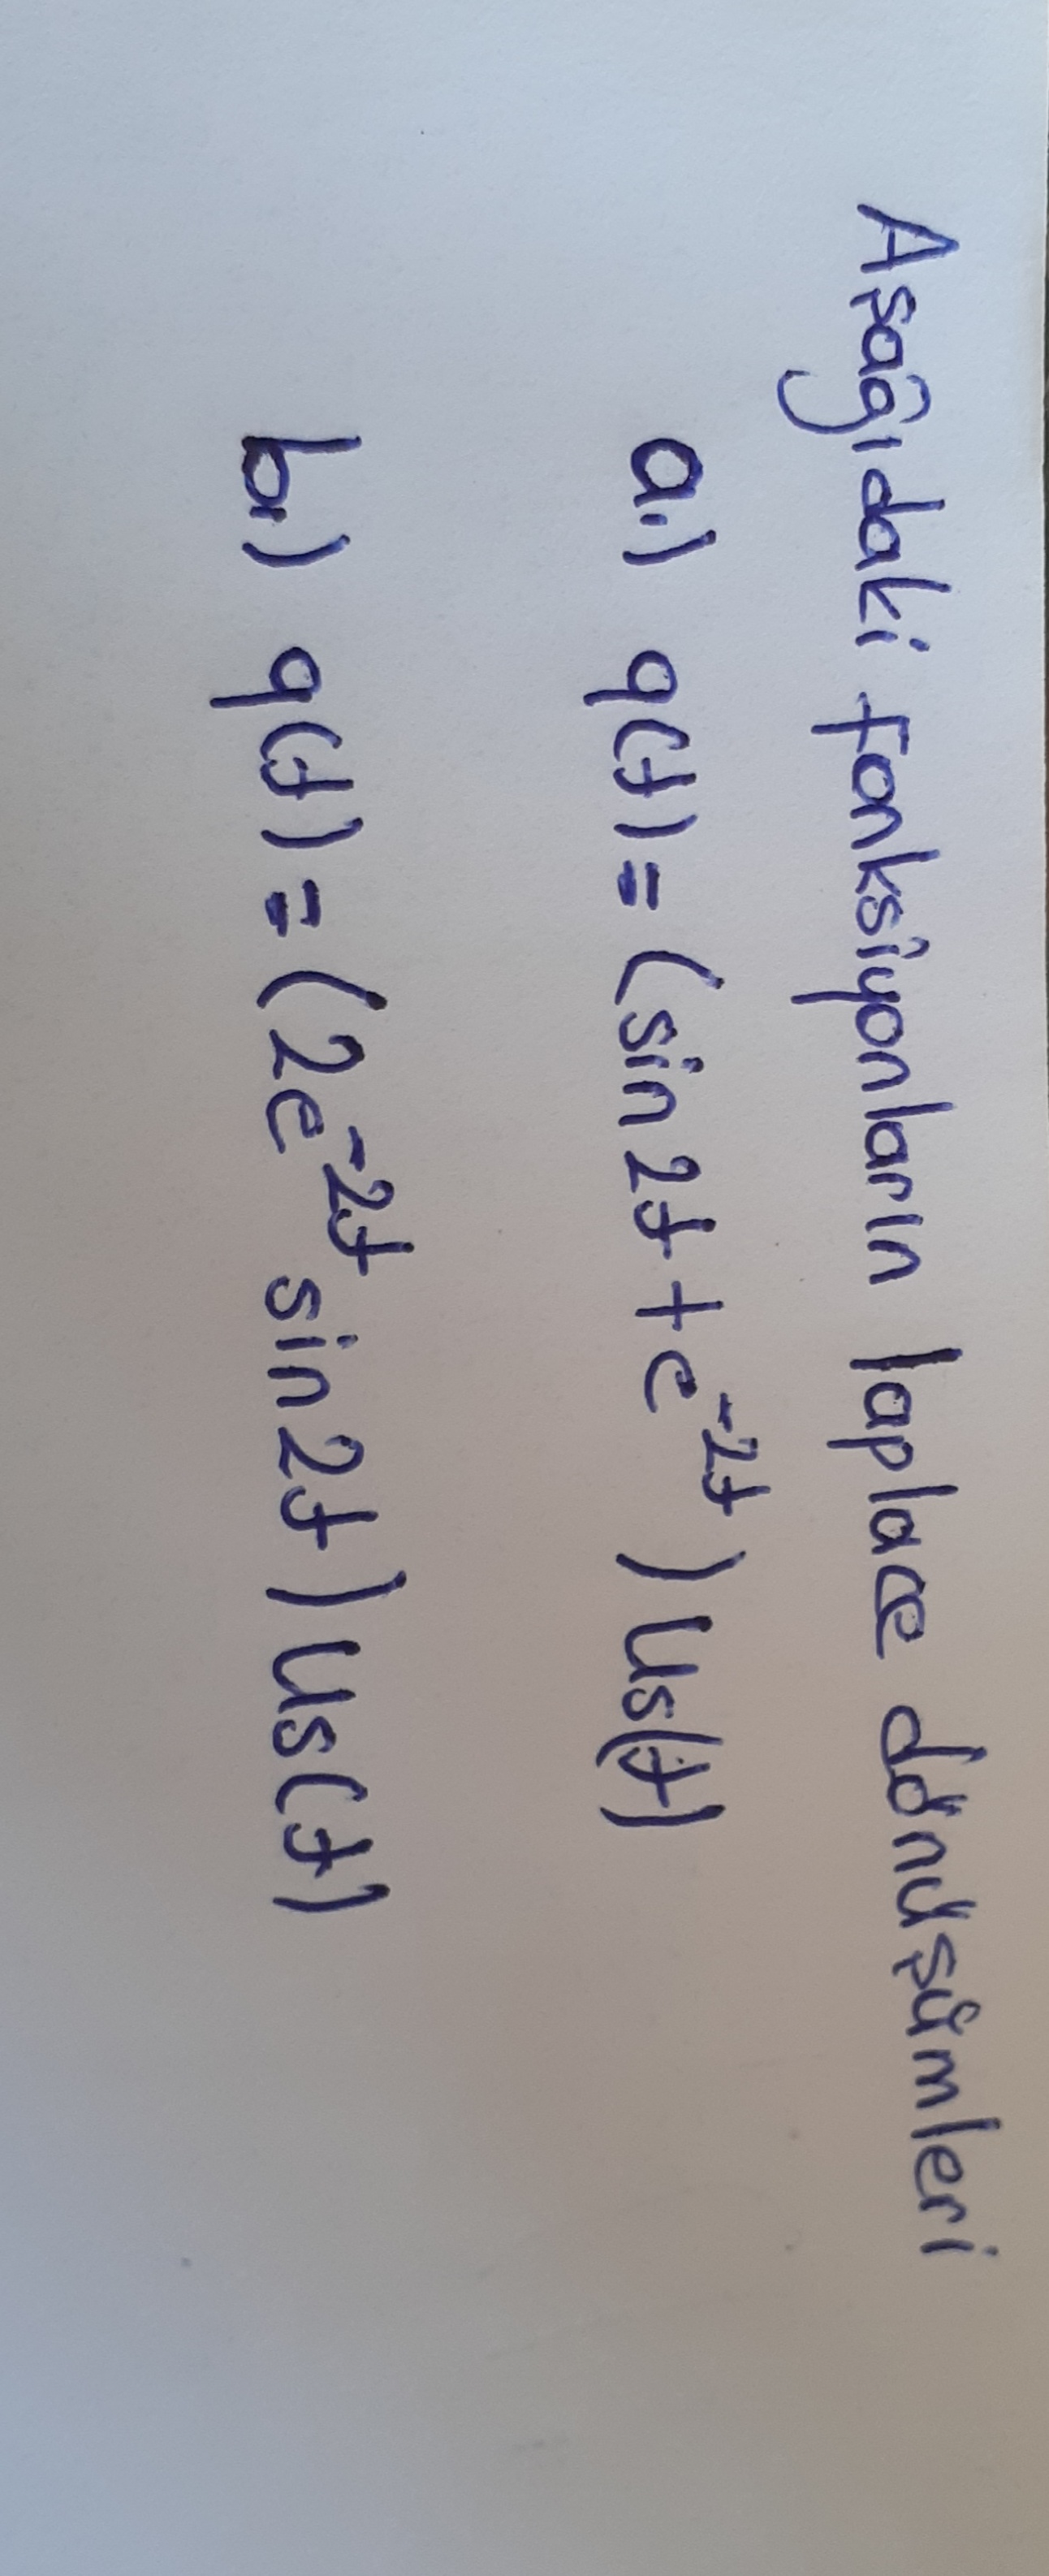 Aşağıdaki fonksiyonların laplace dönüşümleri
a.) q(t) = (sin2t + e^-2t) us(t)
b.) q(t) = (2e^-2t sin2t) us(t)